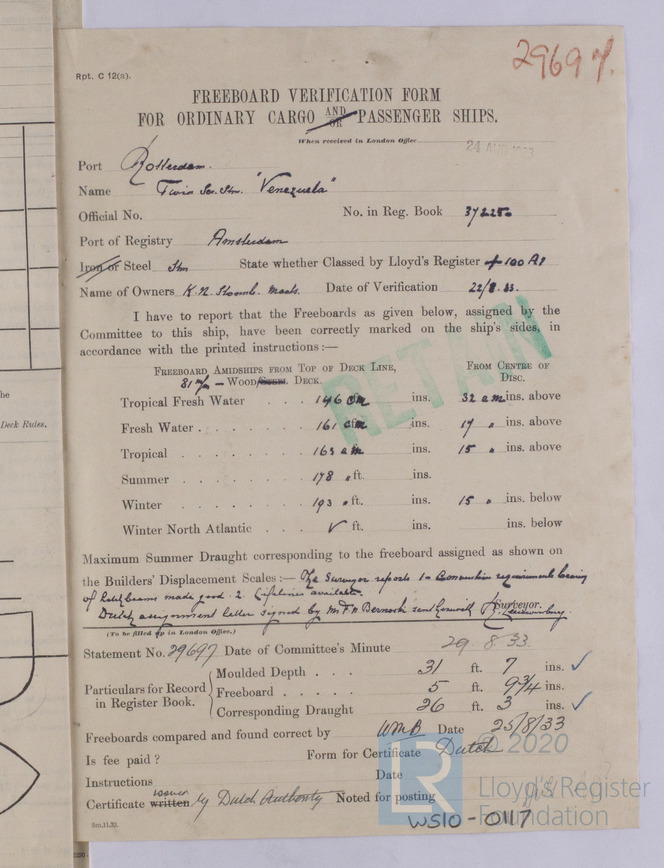 29697.
Rpt. C 12(a).
FREEBOARD VERIFICATION FORM
FOR ORDINARY CARGO AND/OR PASSENGER SHIPS.
When received in London Office
Port Rotterdam.
Name Twin Sc. Stm. "Venezuela"
Official No. No. in Reg. Book 37225
Port of Registry Amsterdam
Iron or Steel Stm State whether Classed by Lloyd's Register + 100 A1
Name of Owners K.N. Stoomb. Maats. Date of Verification 22/8.33.
I have to report that the Freeboards as given below, assigned by the
Committee to this ship, have been correctly marked on the ship's sides, in
accordance with the printed instructions :—
RETAIN
Freeboard Amidships from Top of Deck Line, From Centre of
81 m/m — Wood/Steel Deck. Disc.
Tropical Fresh Water . . . 146 cm ins. 32 cm ins. above
Fresh Water . . . . . . 161 cm ins. 17 " ins. above
Tropical . . . . . . 163 cm ins. 15 " ins. above
Summer . . . . . . 178 " ft. ins.
Winter . . . . . . 193 " ft. ins. 15 " ins. below
Winter North Atlantic . . . ✓ ft. ins. ins. below
Maximum Summer Draught corresponding to the freeboard assigned as shown on
the Builders' Displacement Scales :— The Surveyor reports
of hatch beams made good. 2 Lifelines available.
Dutch assignment letter signed by Mr F. A. herewith Surveyor.
(To be filled up in London Office.)
Statement No. 29697 Date of Committee's Minute 29.8.33.
Moulded Depth . . . 31 ft. 7 ins. ✓
Particulars for Record in Register Book. Freeboard . . . . . 5 ft. 9¾ ins.
Corresponding Draught 26 ft. 3 ins. ✓
Freeboards compared and found correct by WMB Date 25/8/33
Is fee paid ? Form for Certificate Dutch
Instructions Date
Certificate written issued by Dutch Authority Noted for posting
8m.11.32.
WS10-0117
© 2020
LR
Lloyd's Register
Foundation
he
Deck Rules.